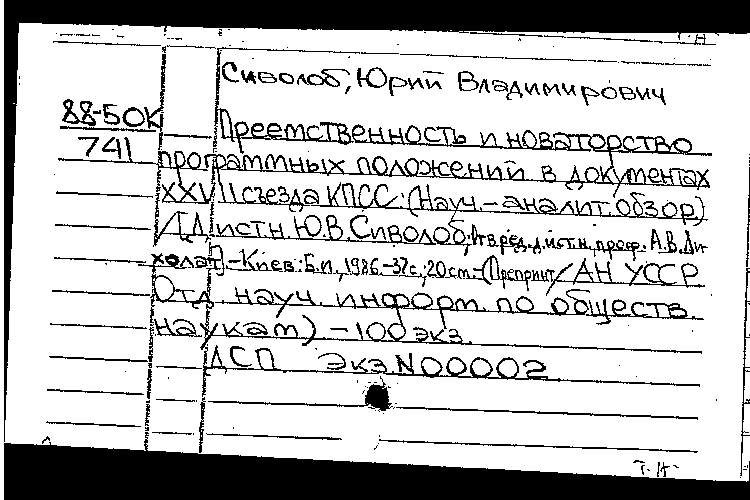 Сиволоб, Юрий Владимирович
88-5 ОК
741
Преемственность и новаторство
программных положений в документах
XXVII съезда КПСС: (Науч.-аналит. обзор)
/[Д.ист.н. Ю.В. Сиволоб; Отв.ред. д.ист.н., проф. А.В. Ли
холат].-Киев: Б.и., 1986.-37с.; 20 см.-(Препринт/АН УССР
Отд. науч. информ. по обществ.
наукам) -100 экз.
ДСП. Экз. N00002